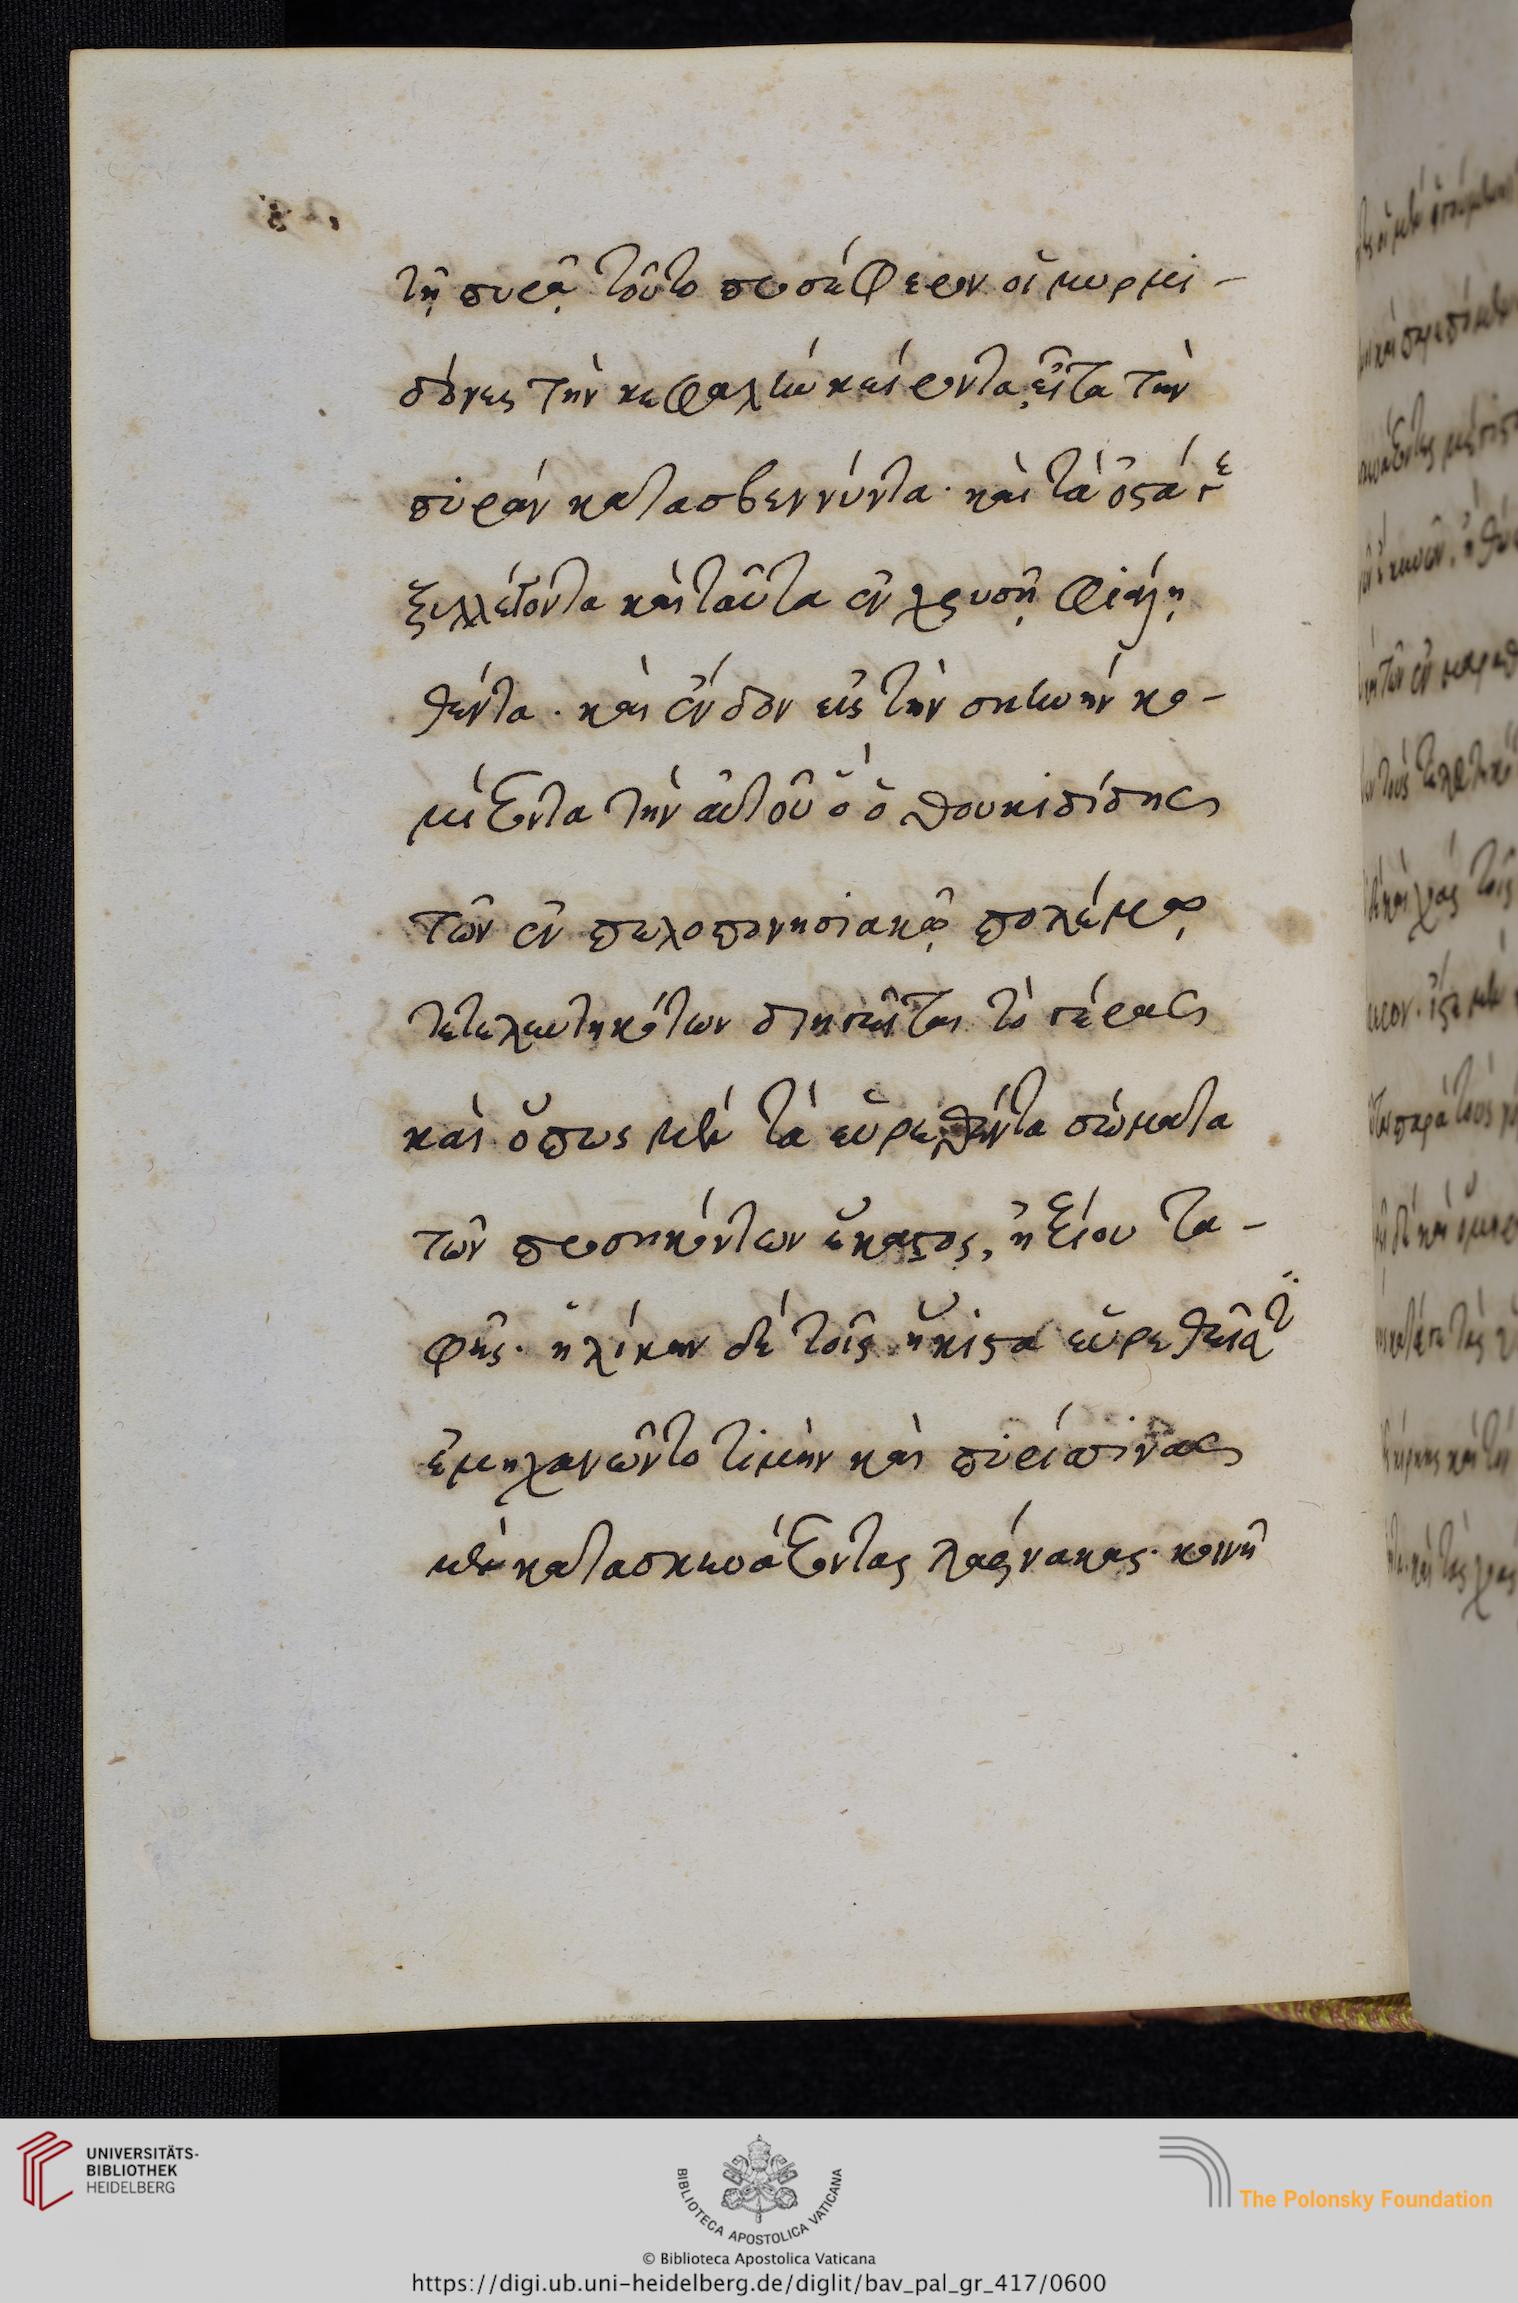 τῆ πυρᾷ τοῦτο προσέφερον οἱ μυρμι-
δόνες τὴν κεφαλὴν κείροντα, εἶτα τὴν
πυρὰν κατασβεννύντα· καὶ τὰ ὀστᾶ
ξυλλέγοντα καὶ ταῦτα ἐν χρυσῇ φιάλῃ
θέντα· καὶ ἔνδον εἰς τὴν σκηνὴν κο-
μίζοντα τὴν αὐτοῦ ὁ θουκιδίδης
τῶν ἐν πελοπονησιακῷ πολέμῳ
τετελευτηκότων διηγεῖται τὸ πέρας
καὶ ὅπως μὲν τὰ εὑρεθέντα σώματα
τῶν προσηκόντων ἕκαστος, ἠξίου τα-
φῆς· ἡλίκην δὲ τοῖς ἥκιστα εὑρεθεῖσι
ἐμηχανῶντο τιμὴν καὶ
μὲν κατασκευάζοντας λάρνακας· κοινῇ
UNIVERSITÄTS-
BIBLIOTHEK
HEIDELBERG
BIBLIOTECA APOSTOLICA VATICANA
The Polonsky Foundation
© Biblioteca Apostolica Vaticana
https://digi.ub.uni-heidelberg.de/diglit/bav_pal_gr_417/0600